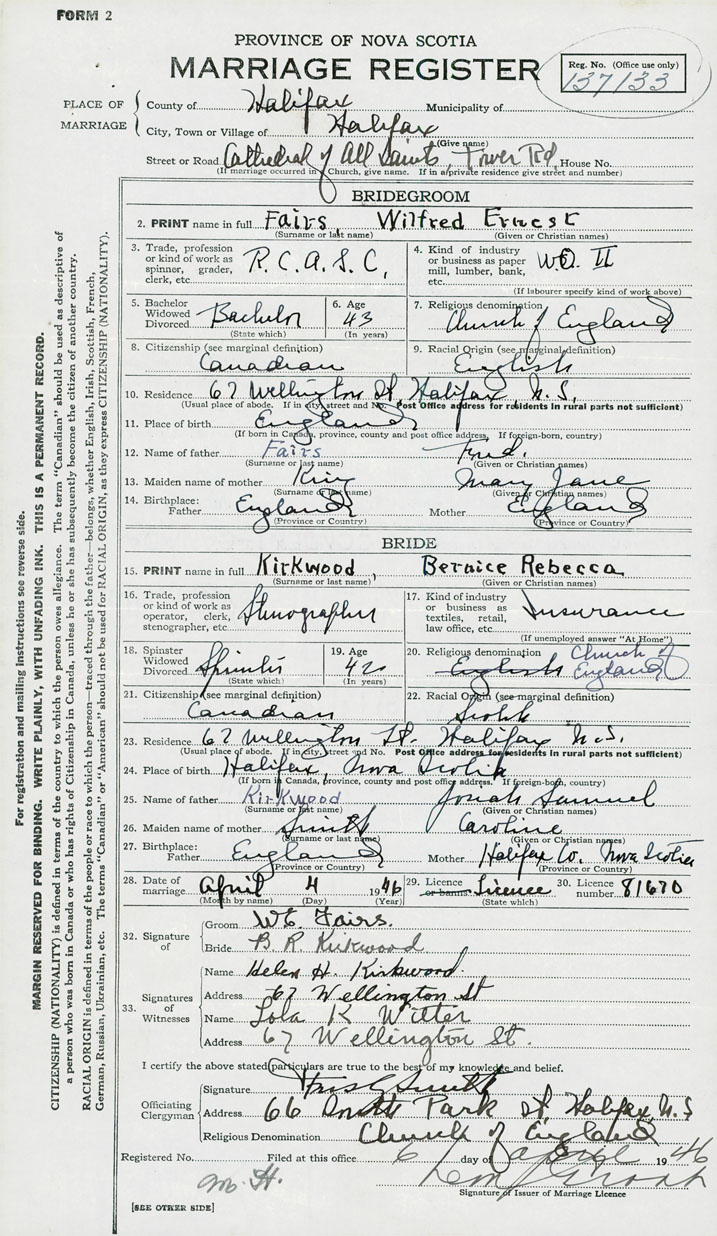 FORM 2
PROVINCE OF NOVA SCOTIA
MARRIAGE REGISTER
Reg. No. (Office use only)
137133
PLACE OF MARRIAGE
County of Halifax Municipality of
City, Town or Village of Halifax
(Give name)
Street or Road Cathedral of All Saints, Tower Rd, House No.
(If marriage occurred in Church, give name. If in a private residence give street and number)
BRIDEGROOM
2. PRINT name in full Fairs, Wilfred Ernest
(Surname or last name) (Given or Christian names)
3. Trade, profession or kind of work as spinner, grader, clerk, etc. R.C.A.S.C,
4. Kind of industry or business as paper mill, lumber, bank, etc. W.O. II
(If labourer specify kind of work above)
5. Bachelor Widowed Divorced Bachelor
(State which)
6. Age 43
(In years)
7. Religious denomination Church of England
8. Citizenship (see marginal definition) Canadian
9. Racial Origin (see marginal definition) English
10. Residence 67 Wellington St, Halifax, N.S.
(Usual place of abode. If in city, street and No. Post Office address for residents in rural parts not sufficient)
11. Place of birth England
(If born in Canada, province, county and post office address. If foreign-born, country)
12. Name of father Fairs Fred.
(Surname or last name) (Given or Christian names)
13. Maiden name of mother Mary Jane
(Surname or last name) (Given or Christian names)
14. Birthplace: Father England Mother England
(Province or Country) (Province or Country)
BRIDE
15. PRINT name in full Kirkwood, Bernice Rebecca
(Surname or last name) (Given or Christian names)
16. Trade, profession or kind of work as operator, clerk, stenographer, etc. Stenographer
17. Kind of industry or business as textiles, retail, law office, etc. Insurance
(If unemployed answer "At Home")
18. Spinster Widowed Divorced Spinster
(State which)
19. Age 42
(In years)
20. Religious denomination English Church of England
21. Citizenship (see marginal definition) Canadian
22. Racial Origin (see marginal definition) Scotch
23. Residence 67 Wellington St. Halifax N.S.
(Usual place of abode. If in city, street and No. Post Office address for residents in rural parts not sufficient)
24. Place of birth Halifax, Nova Scotia
(If born in Canada, province, county and post office address. If foreign-born, country)
25. Name of father Kirkwood Josiah Samuel
(Surname or last name) (Given or Christian names)
26. Maiden name of mother Smith Caroline
(Surname or last name) (Given or Christian names)
27. Birthplace: Father England Mother Halifax Co. Nova Scotia
(Province or Country) (Province or Country)
28. Date of marriage April 4 1946
(Month by name) (Day) (Year)
29. Licence or banns Licence
(State which)
30. Licence number 81670
32. Signature of
Groom W E Fairs.
Bride B R Kirkwood
33. Signatures of Witnesses
Name Helen H. Kirkwood.
Address 67 Wellington St
Name Lola K Witter
Address 67 Wellington St.
I certify the above stated particulars are true to the best of my knowledge and belief.
Officiating Clergyman
Signature Smith
Address 66 Park St, Halifax N.S
Religious Denomination Church of England
Registered No. Filed at this office 6 day of April 1946
M. H.
Signature of Issuer of Marriage Licence
[SEE OTHER SIDE]
For registration and mailing instructions see reverse side.
MARGIN RESERVED FOR BINDING. WRITE PLAINLY, WITH UNFADING INK. THIS IS A PERMANENT RECORD.
CITIZENSHIP (NATIONALITY) is defined in terms of the country to which the person owes allegiance. The term "Canadian" should be used as descriptive of
a person who was born in Canada or who has rights of Citizenship in Canada, unless he or she has subsequently become the citizen of another country.
RACIAL ORIGIN is defined in terms of the people or race to which the person—traced through the father—belongs, whether English, Irish, Scottish, French,
German, Russian, Ukrainian, etc. The terms "Canadian" or "American" should not be used for RACIAL ORIGIN, as they express CITIZENSHIP (NATIONALITY).